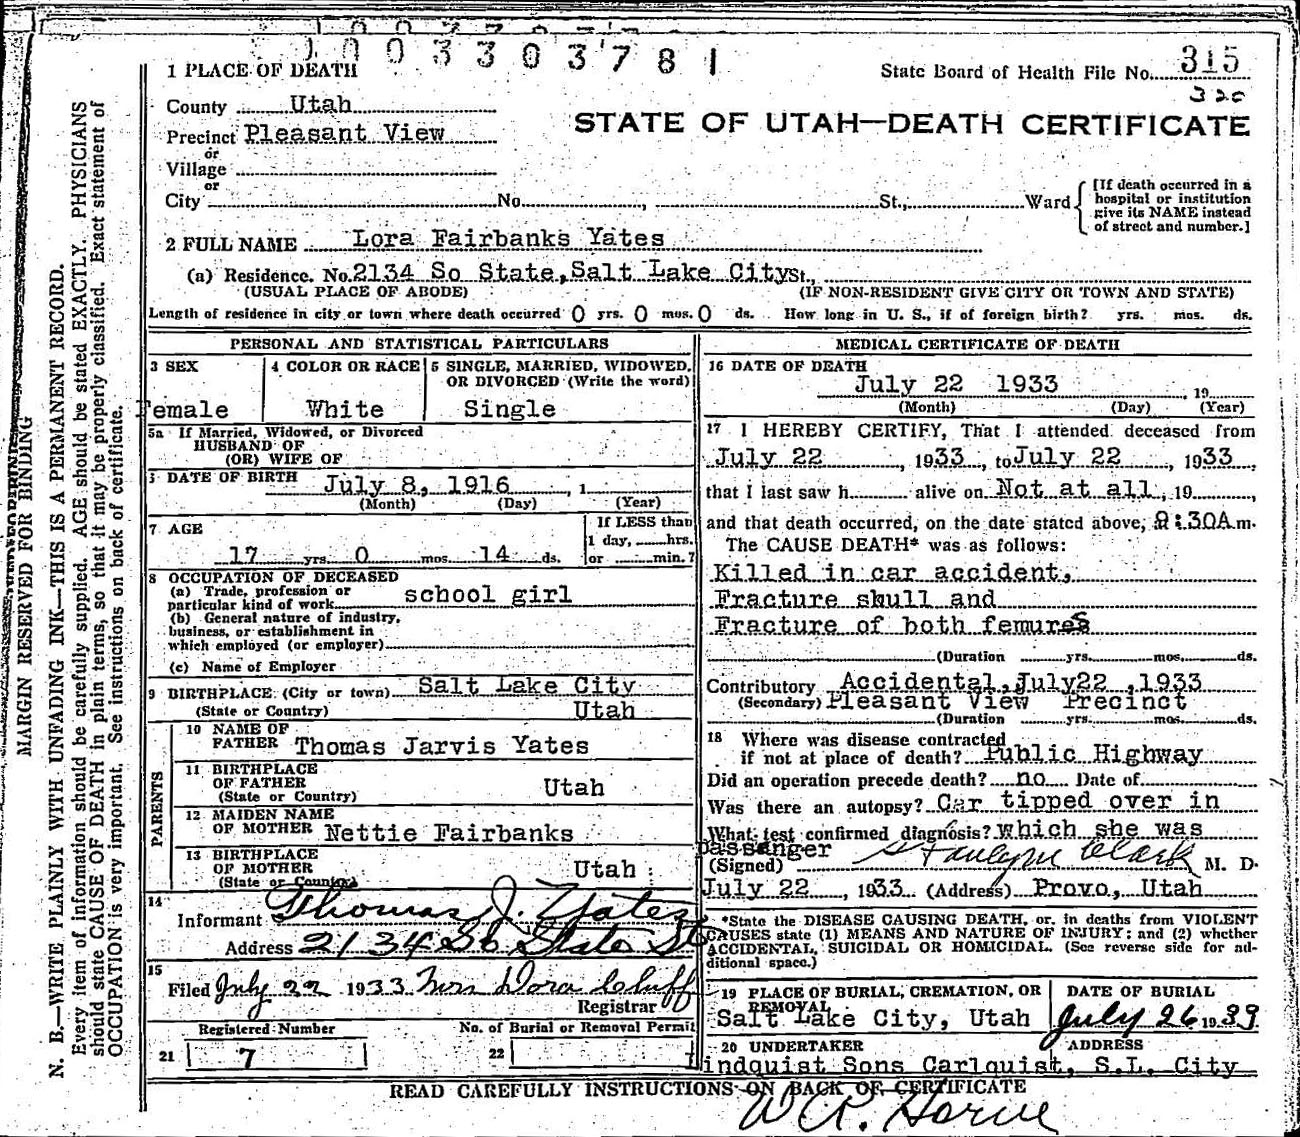 1003303781
1 PLACE OF DEATH
State Board of Health File No. 315
320
County Utah
STATE OF UTAH—DEATH CERTIFICATE
Precinct Pleasant View
or
Village
or
City No. , St., Ward
[If death occurred in a
hospital or institution
give its NAME instead
of street and number.]
2 FULL NAME Lora Fairbanks Yates
(a) Residence. No. 2134 So State, Salt Lake City St.,
(USUAL PLACE OF ABODE) (IF NON-RESIDENT GIVE CITY OR TOWN AND STATE)
Length of residence in city or town where death occurred 0 yrs. 0 mos. 0 ds. How long in U. S., if of foreign birth? yrs. mos. ds.
MARGIN RESERVED FOR BINDING
N. B.—WRITE PLAINLY WITH UNFADING INK—THIS IS A PERMANENT RECORD.
Every item of information should be carefully supplied. AGE should be stated EXACTLY. PHYSICIANS
should state CAUSE OF DEATH in plain terms, so that it may be properly classified. Exact statement of
OCCUPATION is very important. See instructions on back of certificate.
PERSONAL AND STATISTICAL PARTICULARS
3 SEX
Female
4 COLOR OR RACE
White
5 SINGLE, MARRIED, WIDOWED,
OR DIVORCED (Write the word)
Single
5a If Married, Widowed, or Divorced
HUSBAND OF
(OR) WIFE OF
DATE OF BIRTH July 8, 1916 , 1
(Month) (Day) (Year)
7 AGE
17 yrs. 0 mos. 14 ds.
If LESS than
1 day, hrs.
or min.?
8 OCCUPATION OF DECEASED
(a) Trade, profession or
particular kind of work school girl
(b) General nature of industry,
business, or establishment in
which employed (or employer)
(c) Name of Employer
9 BIRTHPLACE (City or town) Salt Lake City
(State or Country) Utah
PARENTS
10 NAME OF
FATHER Thomas Jarvis Yates
11 BIRTHPLACE
OF FATHER Utah
(State or Country)
12 MAIDEN NAME
OF MOTHER Nettie Fairbanks
13 BIRTHPLACE
OF MOTHER Utah
(State or Country)
14
Informant Thomas J. Yates
Address 2134 So State St
15
Filed July 22 1933 Mrs Dora Cluff
Registrar
Registered Number No. of Burial or Removal Permit
21 7 22
MEDICAL CERTIFICATE OF DEATH
16 DATE OF DEATH
July 22 1933 , 19
(Month) (Day) (Year)
17 I HEREBY CERTIFY, That I attended deceased from
July 22 , 1933, to July 22 , 1933,
that I last saw h alive on Not at all, 19 ,
and that death occurred, on the date stated above, 9:30A m.
The CAUSE DEATH* was as follows:
Killed in car accident,
Fracture skull and
Fracture of both femures
(Duration yrs. mos. ds.
Contributory Accidental, July22 ,1933
(Secondary) Pleasant View Precinct
(Duration yrs. mos. ds.
18 Where was disease contracted
if not at place of death? Public Highway
Did an operation precede death? no Date of
Was there an autopsy? Car tipped over in
What test confirmed diagnosis? which she was
passanger
(Signed) Clark M. D.
July 22 , 1933 (Address) Provo, Utah
*State the DISEASE CAUSING DEATH, or, in deaths from VIOLENT
CAUSES state (1) MEANS AND NATURE OF INJURY; and (2) whether
ACCIDENTAL, SUICIDAL OR HOMICIDAL. (See reverse side for ad-
ditional space.)
19 PLACE OF BURIAL, CREMATION, OR
REMOVAL
Salt Lake City, Utah
DATE OF BURIAL
July 26 1933
20 UNDERTAKER ADDRESS
Lindquist Sons Carlquist, S.L. City
READ CAREFULLY INSTRUCTIONS ON BACK OF CERTIFICATE